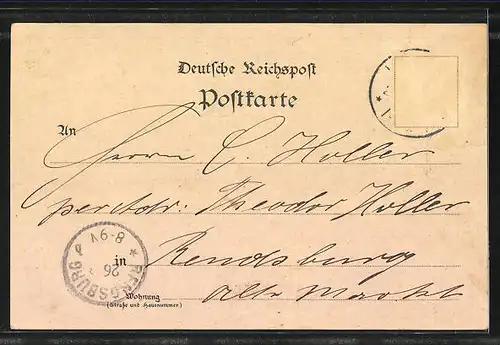 Deutsche Reichspost
Postkarte
An
Herrn C. Holler
Theodor Holler
in Rendsburg
Wohnung
(Straße und Hausnummer)
Alte Markt
RENDSBURG
26
8-9V